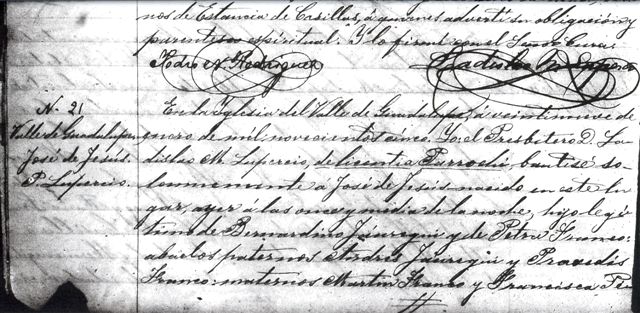 nos de Estancia de Casillas, á quienes advertí su obligación y
parentesco espiritual. Y lo firmé con el Señor Cura.
Pedro N. Rodríguez
Ladislao M. Lupercio
N. 21
Valle de Guadalupe.
José de Jesús.
P. Lupercio.
En la Iglesia del Valle de Guadalupe, á veintinueve de
enero de mil novecientos cinco. Yo el Presbítero D. La-
dislao M. Lupercio, de licentia Parrochi, bauticé so-
lemnemente a José de Jesús nacido en este lu-
gar, ayer á las once y media de la noche, hijo legí-
timo de Bernardino Jáuregui y de Petra Franco:
abuelos paternos Andrés Jáuregui y Praxedis
Franco: maternos Martín Franco y Francisca